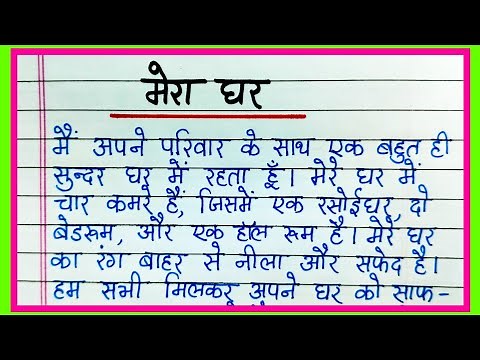 मेरा घर
मैं अपने परिवार के साथ एक बहुत ही
सुन्दर घर में रहता हूँ। मेरे घर में
चार कमरे हैं, जिसमें एक रसोईघर, दो
बेडरूम, और एक हॉल रूम है। मेरे घर
का रंग बाहर से नीला और सफेद है।
हम सभी मिलकर अपने घर को साफ-